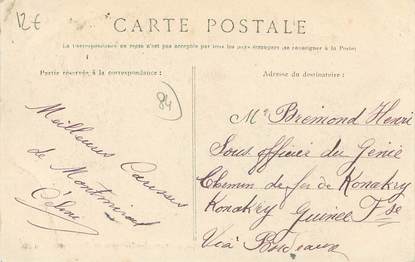 12€
CARTE POSTALE
La correspondance au recto n'est pas acceptée par tous les pays étrangers (se renseigner à la Poste)
Partie réservée à la correspondance :
Adresse du destinataire :
84
Meilleures Caresses
de Montmirail
Céline
Mr Bremond Henri
Sous officier du Génie
Chemin de fer de Konakry
Konakry Guinée Fse
Via Bordeaux